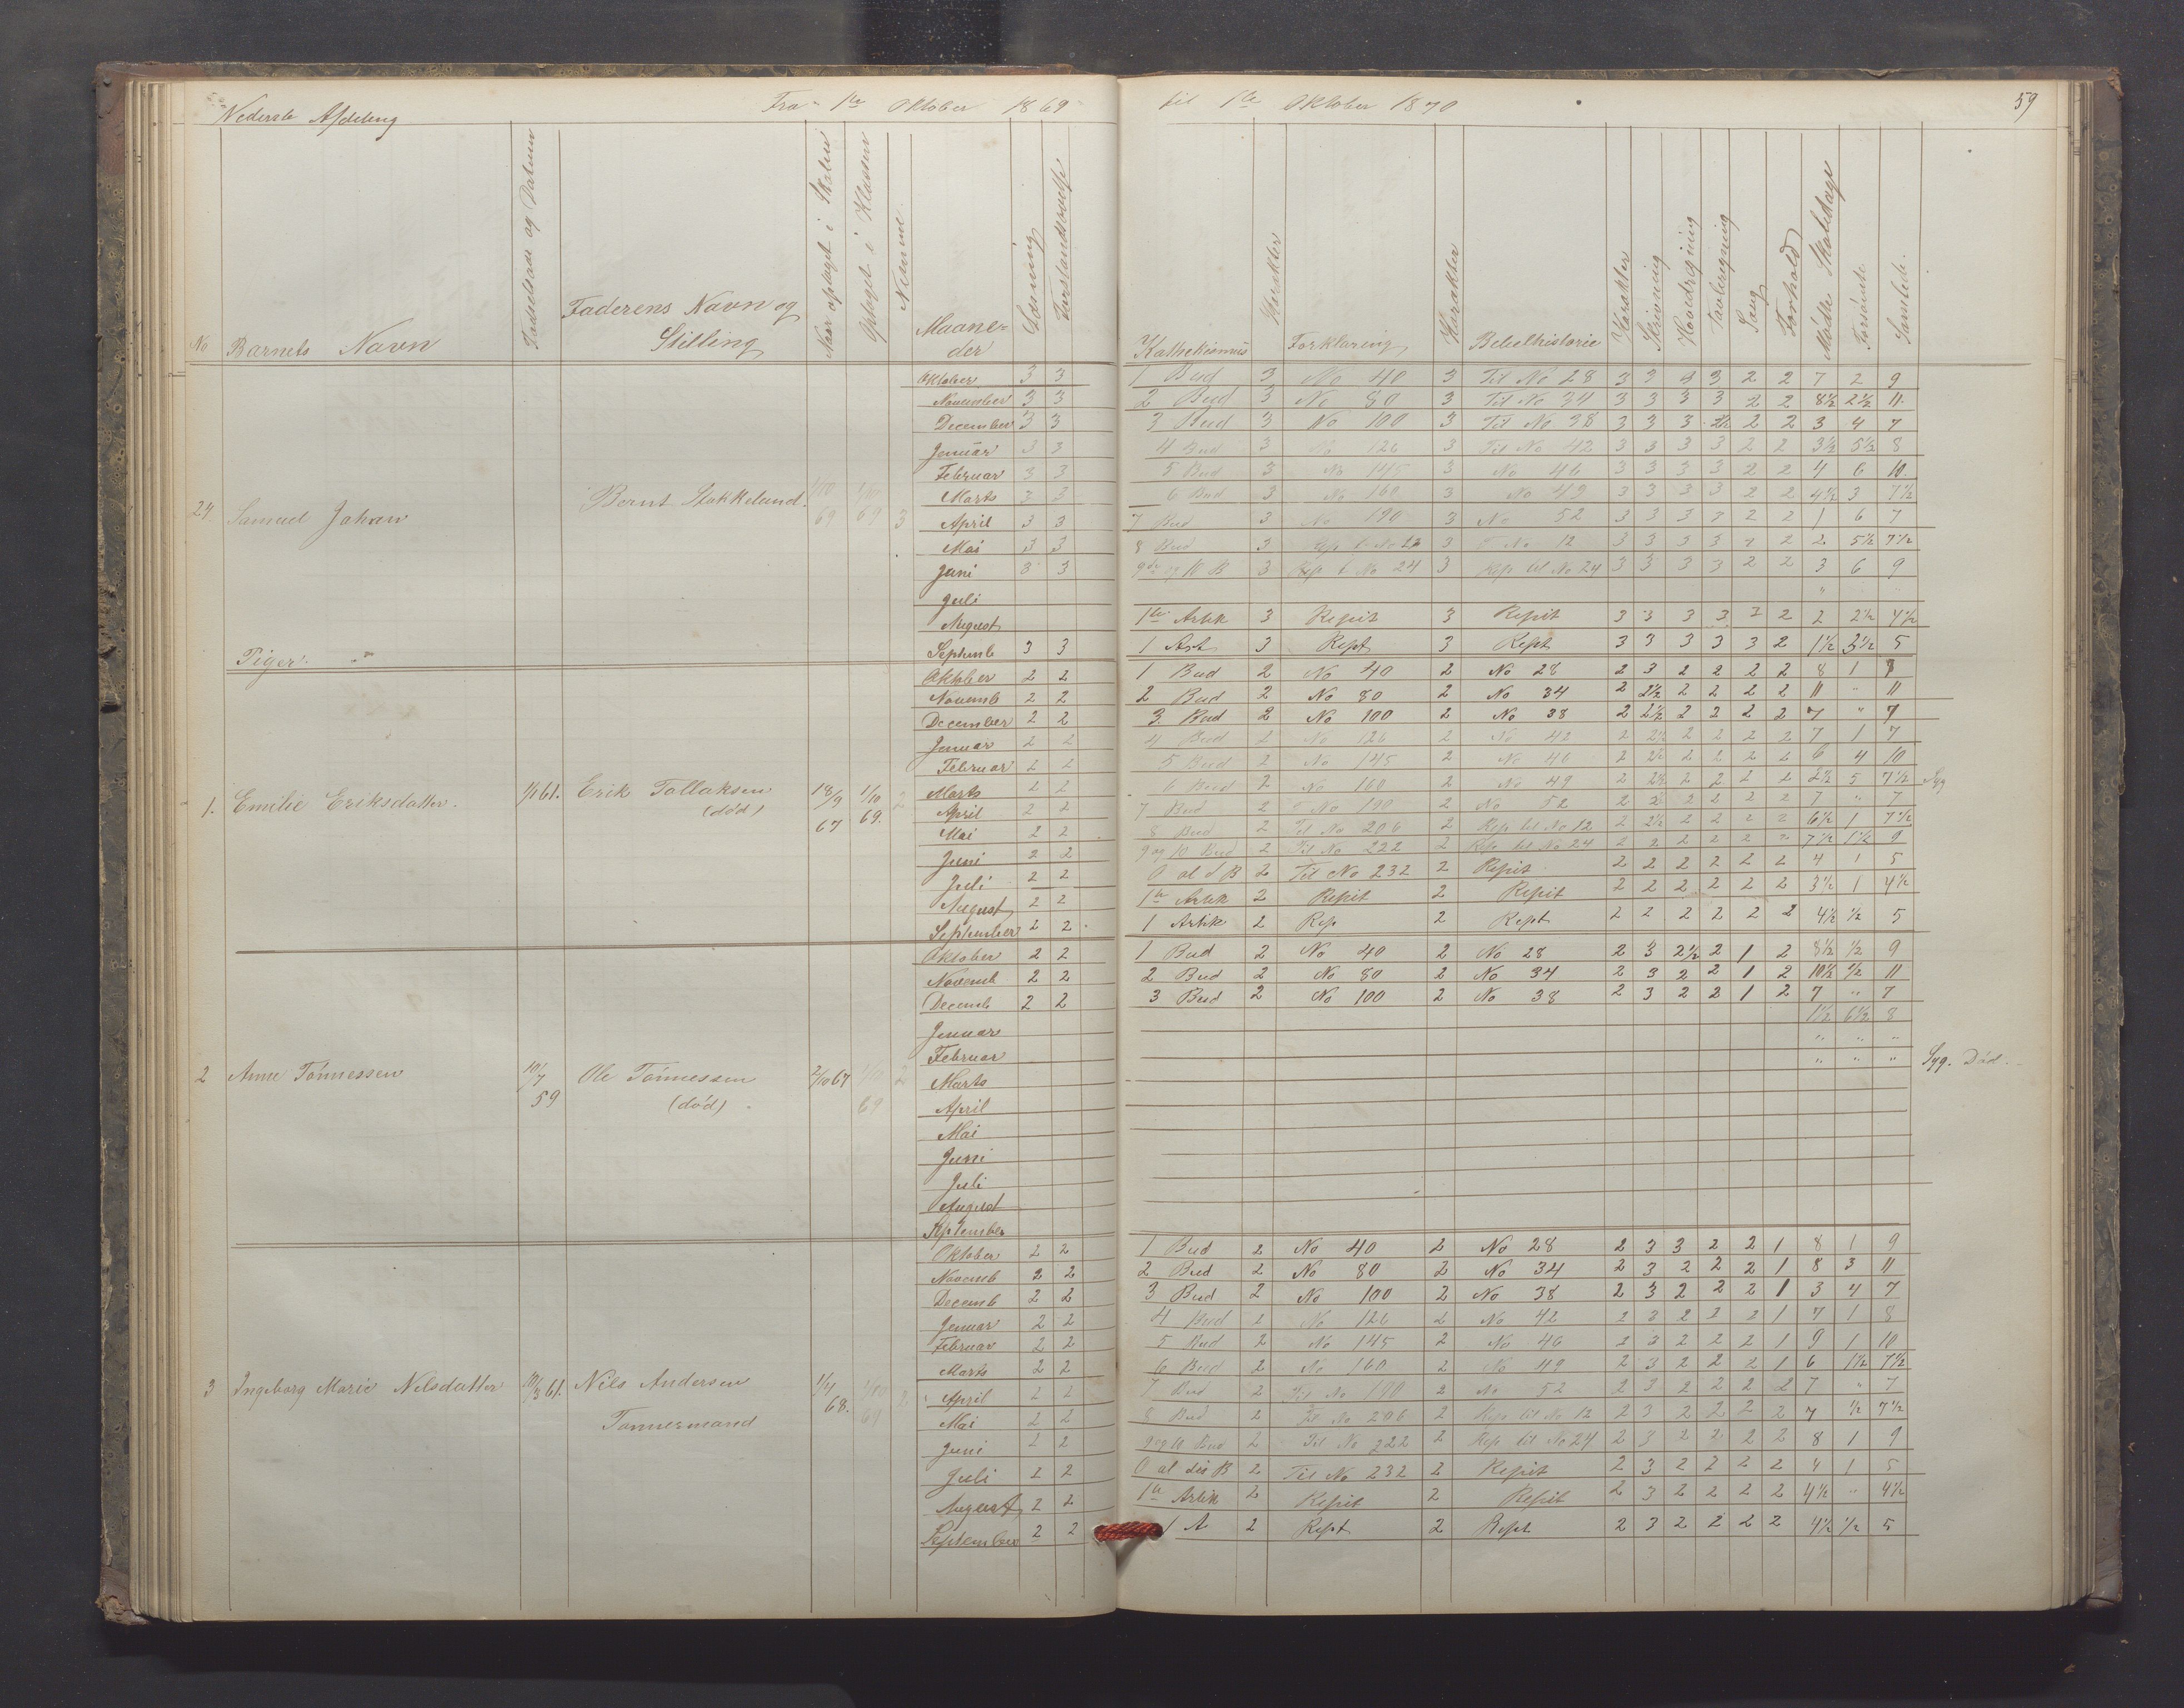 Nederste Afdeling Fra 1te Oktober 1869 til 1te Oktober 1870 59
No Barnets Navn Fødselsaar og Datum Faderens Navn og Stilling Naar optaget i Skolen Optaget i Klassen Nemme Maaneder Læsning Forstandsøvelse Kathekismus Karakter Forklaring Karakter Bibelhistorie Karakter Skrivning Hovedregning Tavleregning Sang Forhold Mødte Skoledage Forsømte Samlede
Oktober 3 3 1 Bud 3 No 40 3 Til No 28 3 3 3 3 2 2 7 2 9
November 3 3 2 Bud 3 No 80 3 Til No 34 3 3 3 3 2 2 8½ 2½ 11
December 3 3 3 Bud 3 No 100 3 Til No 38 3 3 3 2½ 2 2 3 4 7
Januar 3 3 4 Bud 3 No 126 3 Til No 42 3 3 3 3 2 2 3½ 5½ 8
Februar 3 3 5 Bud 3 No 145 3 No 46 3 3 3 3 2 2 4 6 10
Marts 3 3 6 Bud 3 No 160 3 No 49 3 3 3 3 2 2 4½ 3 7½
24. Samuel Johan Bernt Stokkeland. 1/10 69 1/10 69 3
April 3 3 7 Bud 3 No 190 3 No 52 3 3 3 3 2 2 1 6 7
Mai 3 3 8 Bud 3 Rep t No 12 3 No 12 3 3 3 3 2 2 5½ 7½
Juni 3 3 9de og 10 B 3 Rep t No 24 3 Rep til No 24 3 3 3 3 2 2 3 6 9
Juli "
August 1te Artik 3 Repit 3 Repit 3 3 3 3 3 2 2 2½ 4½
Septemb 3 3 1 Art 3 Rept 3 Rept 3 3 3 3 3 2 1½ 3½ 5
Piger.
Oktober 2 2 1 Bud 2 No 40 2 No 28 2 3 2 2 2 2 8 1
Novemb 2 2 2 Bud 2 No 80 2 No 34 2 2½ 2 2 2 2 11 " 11
December 2 2 3 Bud 2 No 100 2 No 38 2 2½ 2 2 2 2 7 " 7
Januar 2 2 4 Bud 2 No 126 2 No 42 2 2½ 2 2 2 2 7 1 7
Februar 2 2 5 Bud 2 No 145 2 No 46 2 2½ 2 2 2 2 6 4 10
Marts 2 2 6 Bud 2 No 160 2 No 49 2 2½ 2 2 2 2 2½ 5 7½ Syg
1. Emilie Eriksdatter. 1/1 61. Erik Tollaksen (død) 18/9 67 1/10 69. 2
April 2 2 7 Bud 2 No 190 2 No 52 2 2 2 2 2 2 7 " 7
Mai 2 2 8 Bud 2 Til No 206 2 Rep til No 12 2 2½ 2 2 2 2 6½ 1 7½
Juni 2 2 9 og 10 Bud 2 Til No 222 2 Rep til No 24 2 2 2 2 2 2 7½ 1½ 9
Juli 2 2 O al d B 2 Til No 232 2 Repit 2 2 2 2 2 2 4 1 5
August 2 2 1te Artik 2 Repit 2 Repit 2 2 2 2 2 2 3½ 1 4½
September 2 2 1 Artik 2 Rep 2 Rept 2 2 2 2 2 2 4½ ½ 5
Oktober 2 2 1 Bud 2 No 40 2 No 28 2 3 2½ 2 1 2 8½ ½ 9
Novemb 2 2 2 Bud 2 No 80 2 No 34 2 3 2 2 1 2 10½ ½ 11
Decemb 2 2 3 Bud 2 No 100 2 No 38 2 3 2 2 1 2 7 " 7
Januar 1½ 6½ 8
Februar " " "
2 Anne Tónnessen 10/7 59 Ole Tónnessen (død) 2/10 67 1/10 69 2
Marts " " " Syg. Død.
April
Mai
Juni
Juli
August
September
Oktober 2 2 1 Bud 2 No 40 2 No 28 2 3 3 2 2 1 8 1 9
Novemb 2 2 2 Bud 2 No 80 2 No 34 2 3 2 2 2 1 8 3 11
Decemb 2 2 3 Bud 2 No 100 2 No 38 2 3 2 2 2 1 3 4 7
Januar 2 2 4 Bud 2 No 126 2 No 42 2 3 2 2 2 1 7 1 8
Februar 2 2 5 Bud 2 No 145 2 No 46 2 3 2 2 2 1 9 1 10
Marts 2 2 6 Bud 2 No 160 2 No 49 2 3 2 2 2 1 6 1½ 7½
3 Ingeborg Marie Nilsdatter 61. Nils Andersen Tømmermand 1/4 68. 1/10 69 2
April 2 2 7 Bud 2 Til No 190 2 No 52 2 3 2 2 2 2 7 " 7
Mai 2 2 8 Bud 2 Til No 206 2 Rep til No 12 2 3 2 2 2 2 7 ½ 7½
Juni 2 2 9 og 10 Bud 2 Til No 222 2 Rep til No 24 2 3 2 2 2 2 8 1 9
Juli 2 2 O al dis B 2 Til No 232 2 Repit 2 3 2 2 2 2 4 1 5
August 2 2 1te Artik 2 Repit 2 Repit 2 3 2 2 2 2 4½ " 4½
September 2 2 1 A 2 Rept 2 Rept 2 3 2 2 2 2 4½ ½ 5